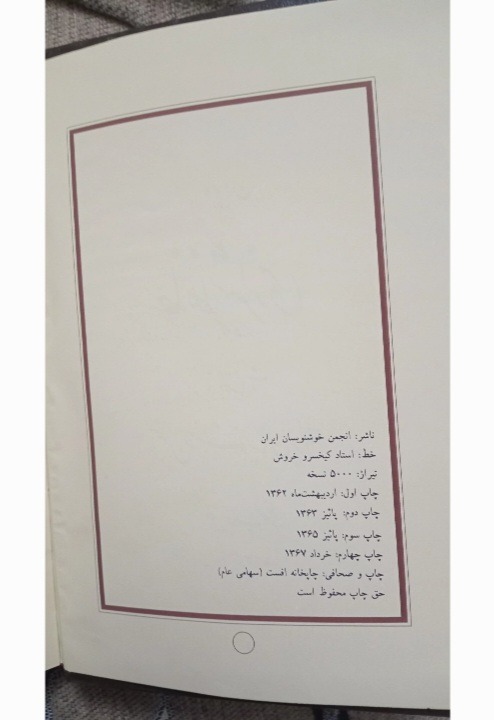 ناشر: انجمن خوشنویسان ایران
خط: استاد کیخسرو خروش
تیراژ: ۵۰۰۰ نسخه
چاپ اول: اردیبهشت‌ماه ۱۳۶۲
چاپ دوم: پائیز ۱۳۶۳
چاپ سوم: پائیز ۱۳۶۵
چاپ چهارم: خرداد ۱۳۶۷
چاپ و صحافی: چاپخانه افست (سهامی عام)
حق چاپ محفوظ است